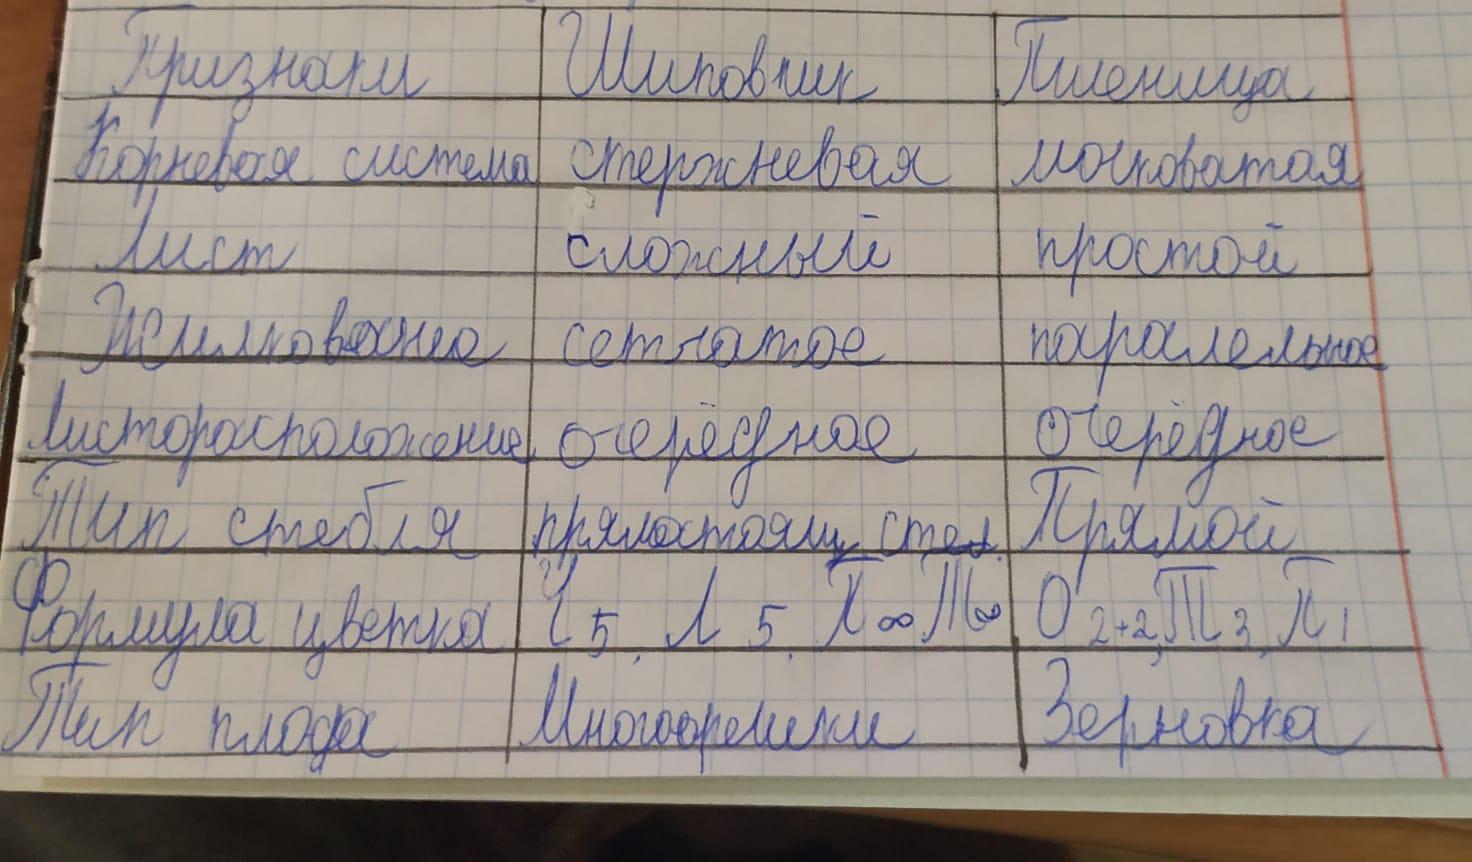 Признаки Шиповник Пшеница
Корневая система стержневая мочковатая
Лист сложный простой
Жилкование сетчатое паралельное
Листорасположение очерёдное очерёдное
Тип стебля прямостоящ. стел. Прямой
Формула цветка Ч5, Л5, П∞ Т∞ О2+2, Т3, П1
Тип плода Многоорешки Зерновка